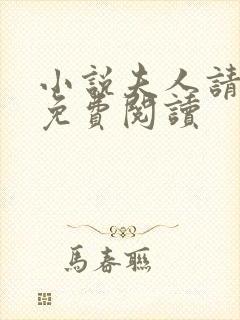 小說夫人請
免費閱讀
馬春聯